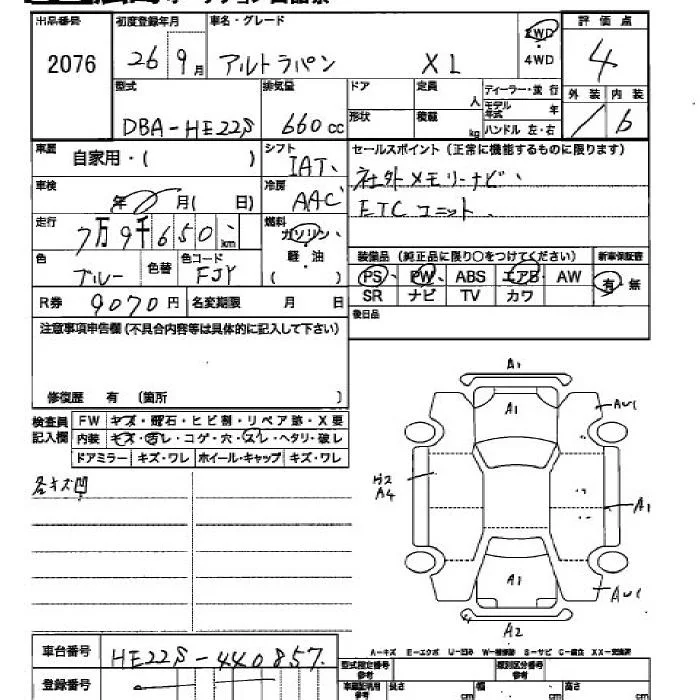 出品番号 初度登録年月 車名・グレード 2WD 評価点
2076 26 9月 アルトラパン XL ・ 4WD 4
型式 排気量 ドア 定員 人 ディーラー・並行 外装 内装
DBA-HE22S 660cc 形状 積載 kg モデル年式 年 ハンドル 左・右 / 6
車歴 自家用・( ) シフト IAT セールスポイント(正常に機能するものに限ります)
車検 年 月( 日) 冷房 AAC 社外メモリーナビ、
ETCユニット、
走行 7万9千650 km 燃料 ガソリン・軽・油
装備品(純正品に限り○をつけてください) 新車保証書
色 ブルー 色替 色コード FJY PS PW ABS エアB AW 有・無
R券 9070円 名変期限 月 日 SR ナビ TV カワ
注意事項申告欄(不具合内容等は具体的に記入して下さい) 後日品
修復歴 有 (箇所 )
検査員記入欄 FW キズ・飛石・ヒビ割・リペア跡・X要
内装 キズ・汚レ・コゲ・穴・スレ・ヘタリ・破レ
ドアミラー キズ・ワレ ホイール・キャップ キズ・ワレ
各キズ凹
A1
A1
AU1
A4
A1
A1
AU1
A2
A-キズ E-エクボ U-凹み W-補修跡 S-サビ C-腐食 XX-交換済
車台番号 HE22S-440857
型式指定番号 参考 類別区分番号 参考
登録番号 長さ cm 幅 cm 高さ cm